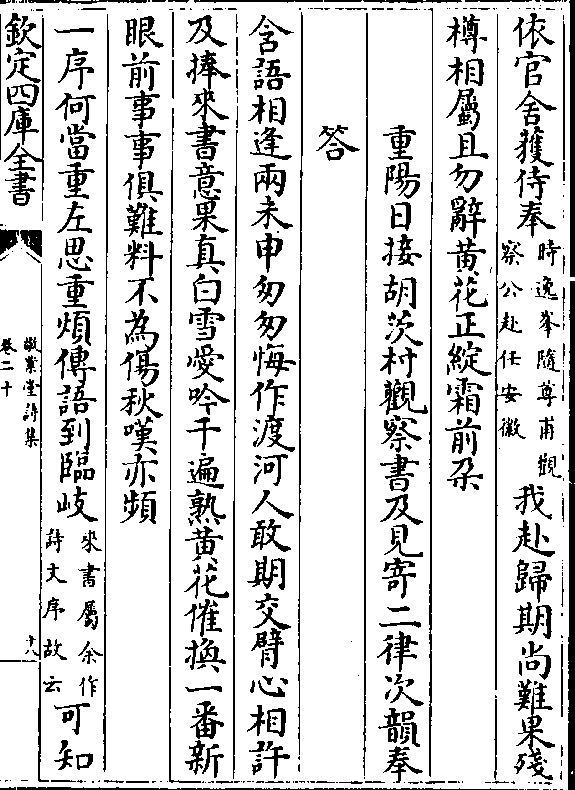 依官舍獲侍奉時逸峯隨尊甫觀察公赴任安徽我赴歸期尚難果殘
樽相屬且勿辭黄花正綻霜前朶
重陽日接胡茨村觀察書及見寄二律次韻奉
答
含語相逢兩未申匆匆悔作渡河人敢期交臂心相許
及捧來書意果真白雪愛吟千遍熟黄花催換一番新
眼前事事俱難料不為傷秋嘆亦頻
一序何當重左思重煩傳語到臨岐來書屬余作詩文序故云可知
欽定四庫全書
敬業堂詩集
卷二十
十八